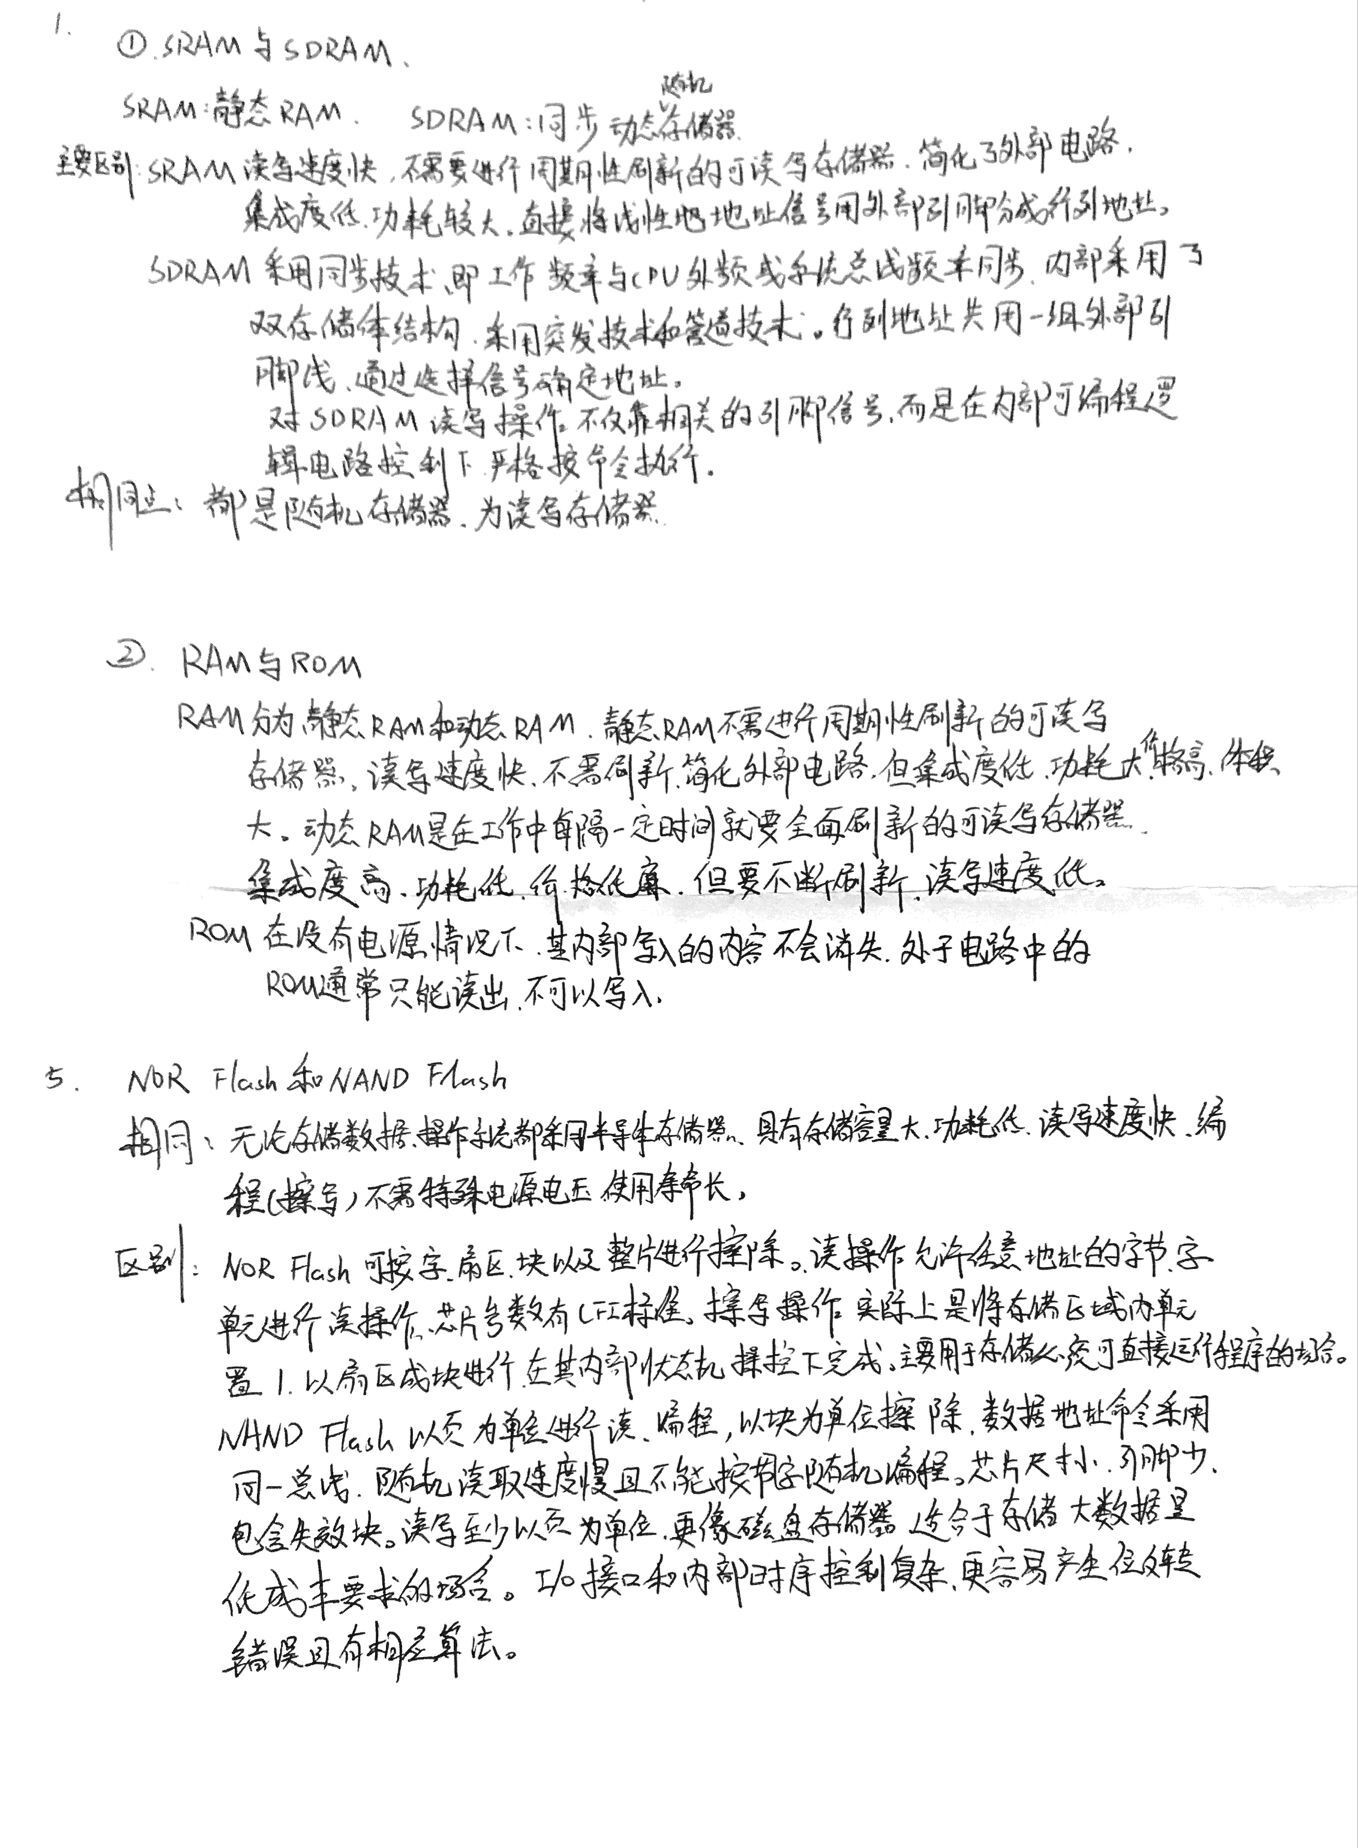 1.
①.SRAM与SDRAM、
SRAM:静态RAM. SDRAM:同步动态随机存储器.
主要区别:SRAM读写速度快,不需要进行周期性刷新的可读写存储器.简化了外部电路.
集成度低.功耗较大.直接将线性地址信号用外部引脚分成行列地址。
SDRAM采用同步技术、即工作频率与CPU外频或系统总线频率同步.内部采用了
双存储体结构.采用突发技术和管道技术。行列地址共用一组外部引
脚线、通过选择信号确定地址。
对SDRAM读写操作.不仅靠相关的引脚信号,而是在内部可编程逻
辑电路控制下严格按命令执行.
相同点:都是随机存储器.为读写存储器.
②. RAM与ROM
RAM分为静态RAM和动态RAM.静态RAM不需进行周期性刷新的可读写
存储器、读写速度快.不需刷新.简化外部电路.但集成度低.功耗大.价格高.体积
大。动态RAM是在工作中每隔一定时间就要全面刷新的可读写存储器.
集成度高.功耗低.价格低廉.但要不断刷新.读写速度低。
ROM在没有电源情况下.其内部写入的内容不会消失.处于电路中的
ROM通常只能读出.不可以写入.
5. NOR Flash和NAND Flash
相同:无论存储数据、操作系统都采用半导体存储器、具有存储容量大.功耗低.读写速度快.编
程(擦写)不需特殊电源电压.使用寿命长,
区别:NOR Flash可按字.扇区.块以及整片进行擦除。读操作允许任意地址的字节.字
单元进行读操作、芯片参数有CFI标准。擦写操作实际上是将存储区域内单元
置1.以扇区或块进行.在其内部状态机操控下完成。主要用于存储系统可直接运行程序的场合。
NAND Flash以页为单位进行读、编程,以块为单位擦除.数据地址命令采用
同一总线.随机读取速度慢且不能按字节随机编程。芯片尺寸小.引脚少.
包含失效块。读写至少以页为单位.更像磁盘存储器.适合于存储大数据量
低成本要求的场合。I/O接口和内部时序控制复杂.更容易产生位反转
错误且有相应算法。